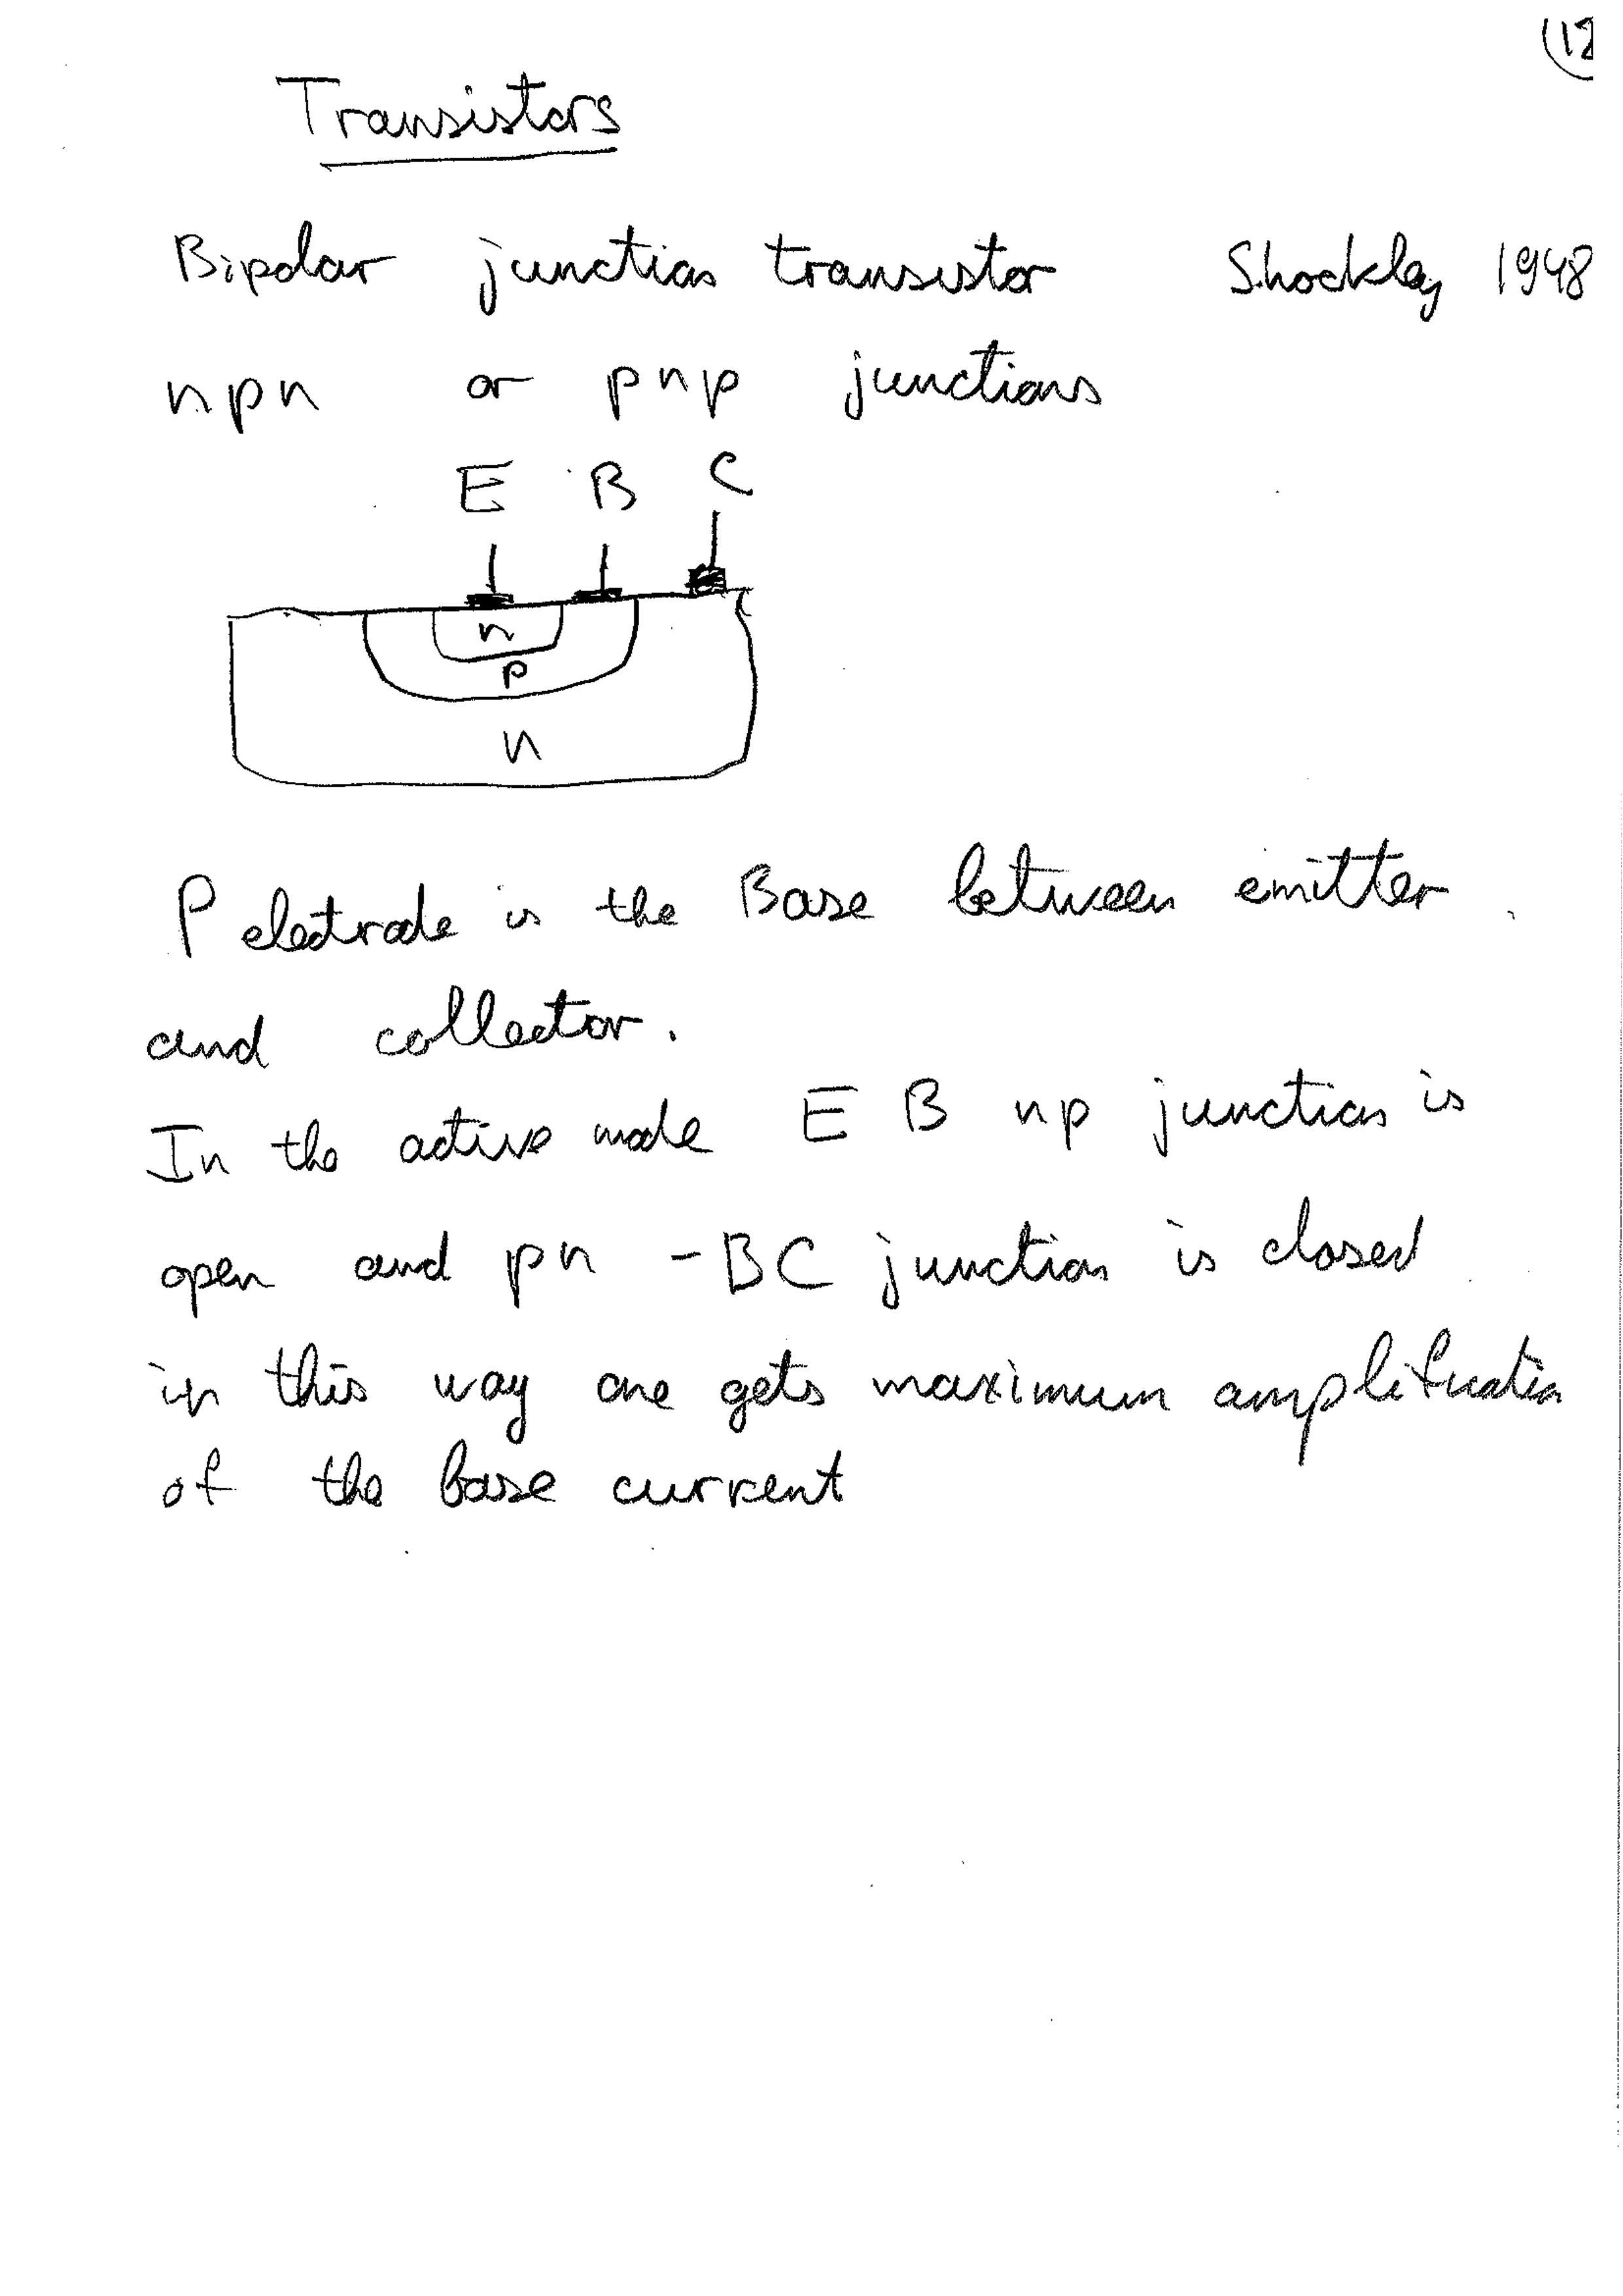 (12
Transistors
Bipolar junction transistor Shockley 1948
npn or pnp junctions
E B C
n
p
n
P electrode is the Base between emitter
and collector.
In the active mode E B np junction is
open and pn - BC junction is closed
in this way one gets maximum amplification
of the base current